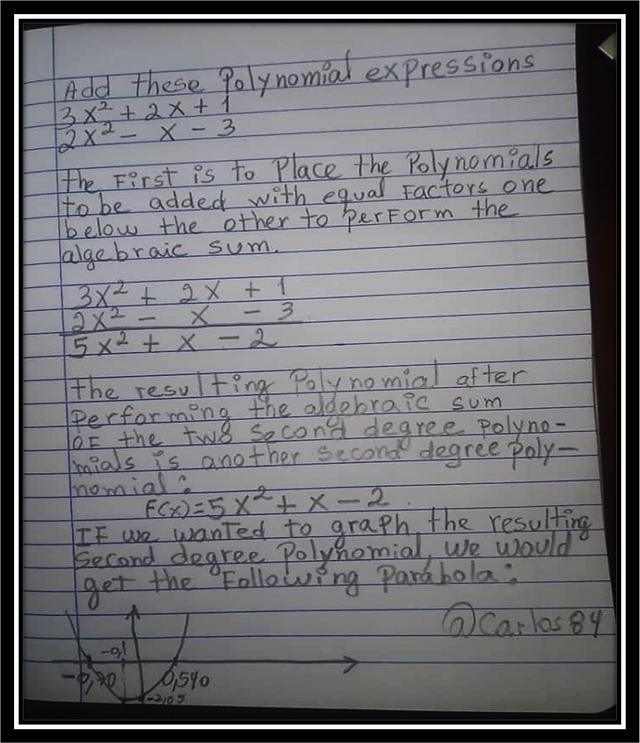 Add these Polynomial expressions
3x² + 2x + 1
2x² - x - 3
the First is to Place the Polynomials
to be added with equal Factors one
below the other to perForm the
algebraic sum.
3x² + 2x + 1
2x² - x - 3
5x² + x - 2
the resulting Polynomial after
Performing the aldebraic sum
oF the two Second degree Polyno-
mials is another second degree poly-
nomial:
F(x)=5x²+x-2.
IF we wanted to graph the resulting
Second degree Polynomial, we would
get the Following Parabola:
@Carlos84
-0,1
-0,70 0,540
-2,05